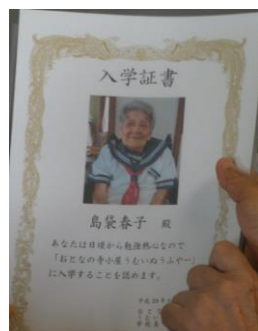 入学証書
島袋春子 殿
あなたは日頃から勉強熱心なので
「おとなの寺小屋うむいぬうふやー」
に入学することを認めます。
平成